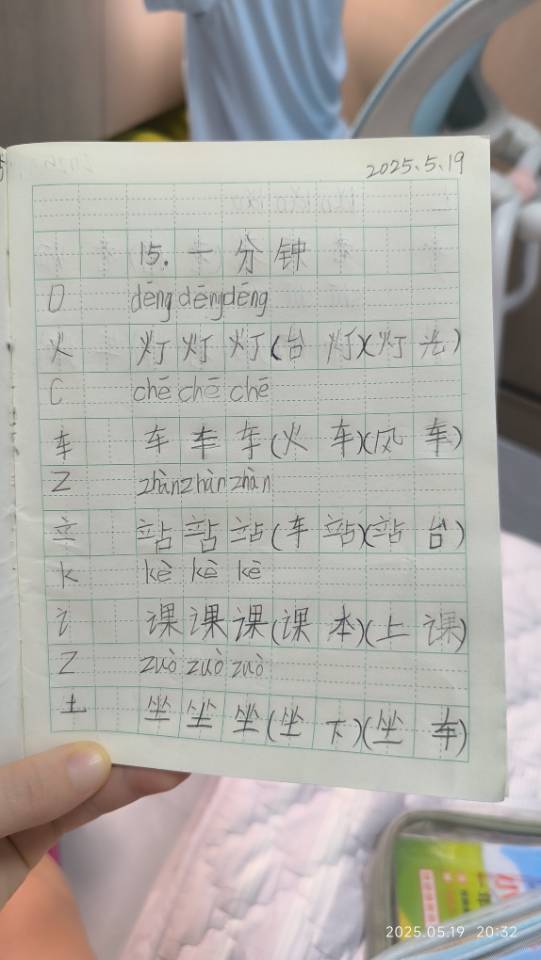 2025.5.19
15. 一分钟
D dēng dēng dēng
火 灯 灯 灯 (台灯)(灯光)
C chē chē chē
车 车 车 车 (火车)(风车)
Z zhàn zhàn zhàn
立 站 站 站 (车站)(站台)
k kè kè kè
讠 课 课 课 (课本)(上课)
Z zuò zuò zuò
土 坐 坐 坐 (坐下)(坐车)
2025.05.19 20:32